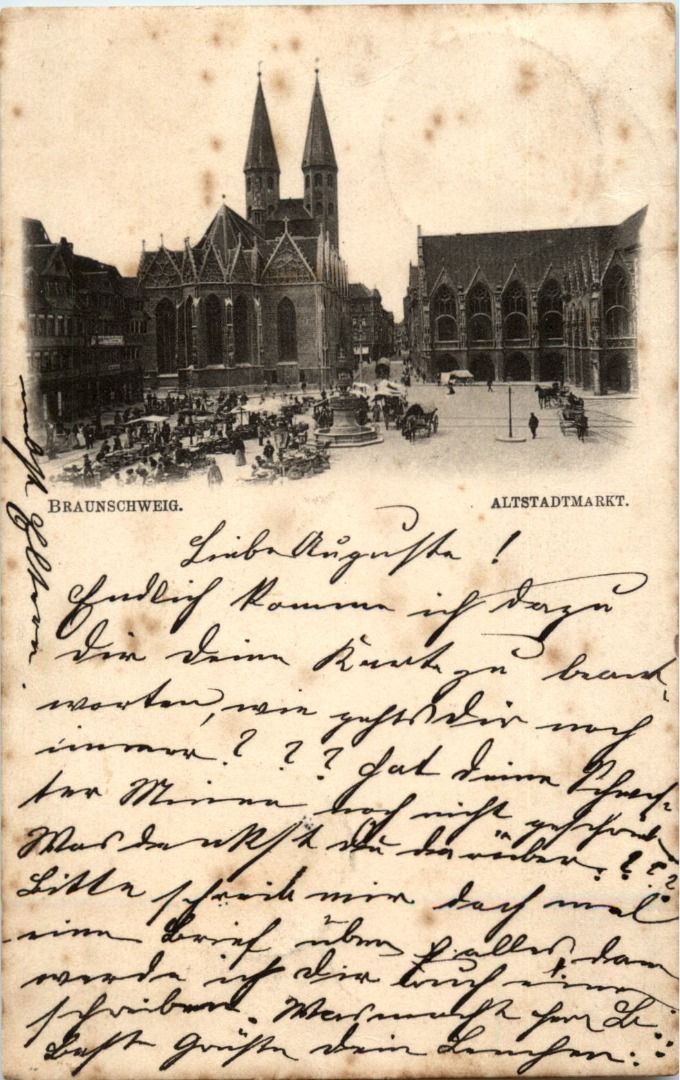 BRAUNSCHWEIG.
ALTSTADTMARKT.
Liebe Auguste!
Endlich komme ich dazu
Dir deine Karte zu beant-
worten, wie gehts Dir noch
immer??? hat deine Schwes-
ter Minna noch nicht geschrieb
Was denkst du darüber.???
Bitte schreib mir doch mal
eine Brief über alles, dann
werde ich Dir auch einen
schreiben. Was macht herr
Beste Grüße dein Lenchen.